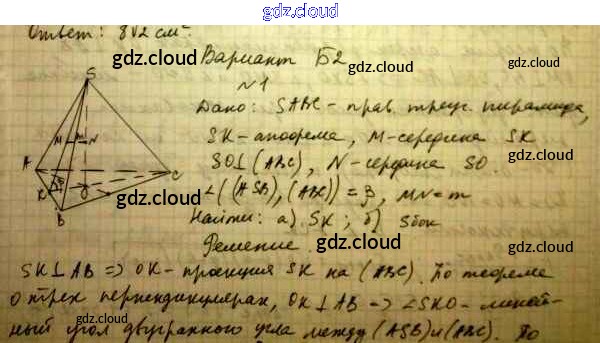 gdz.cloud
Ответ: 8√2 см².
Вариант Б2
gdz.cloud
№1
S
gdz.cloud
Дано: SABC - прав. треуг. пирамида,
M N
SK - апофема, M - середина SK
gdz.cloud
A
SO⊥(ABC), N - середина SO.
gdz.cloud
C
K β O
∠((ASB), (ABC)) = β, MN = m
B
gdz.cloud
Найти: а) SK; б) Sбок
gdz.cloud
Решение
SK⊥AB => OK - проекция SK на (ABC). По теореме
gdz.cloud
о трех перпендикулярах, OK⊥AB => ∠SKO - линей-
gdz.cloud
ный угол двугранного угла между (ASB) и (ABC). По
gdz.cloud